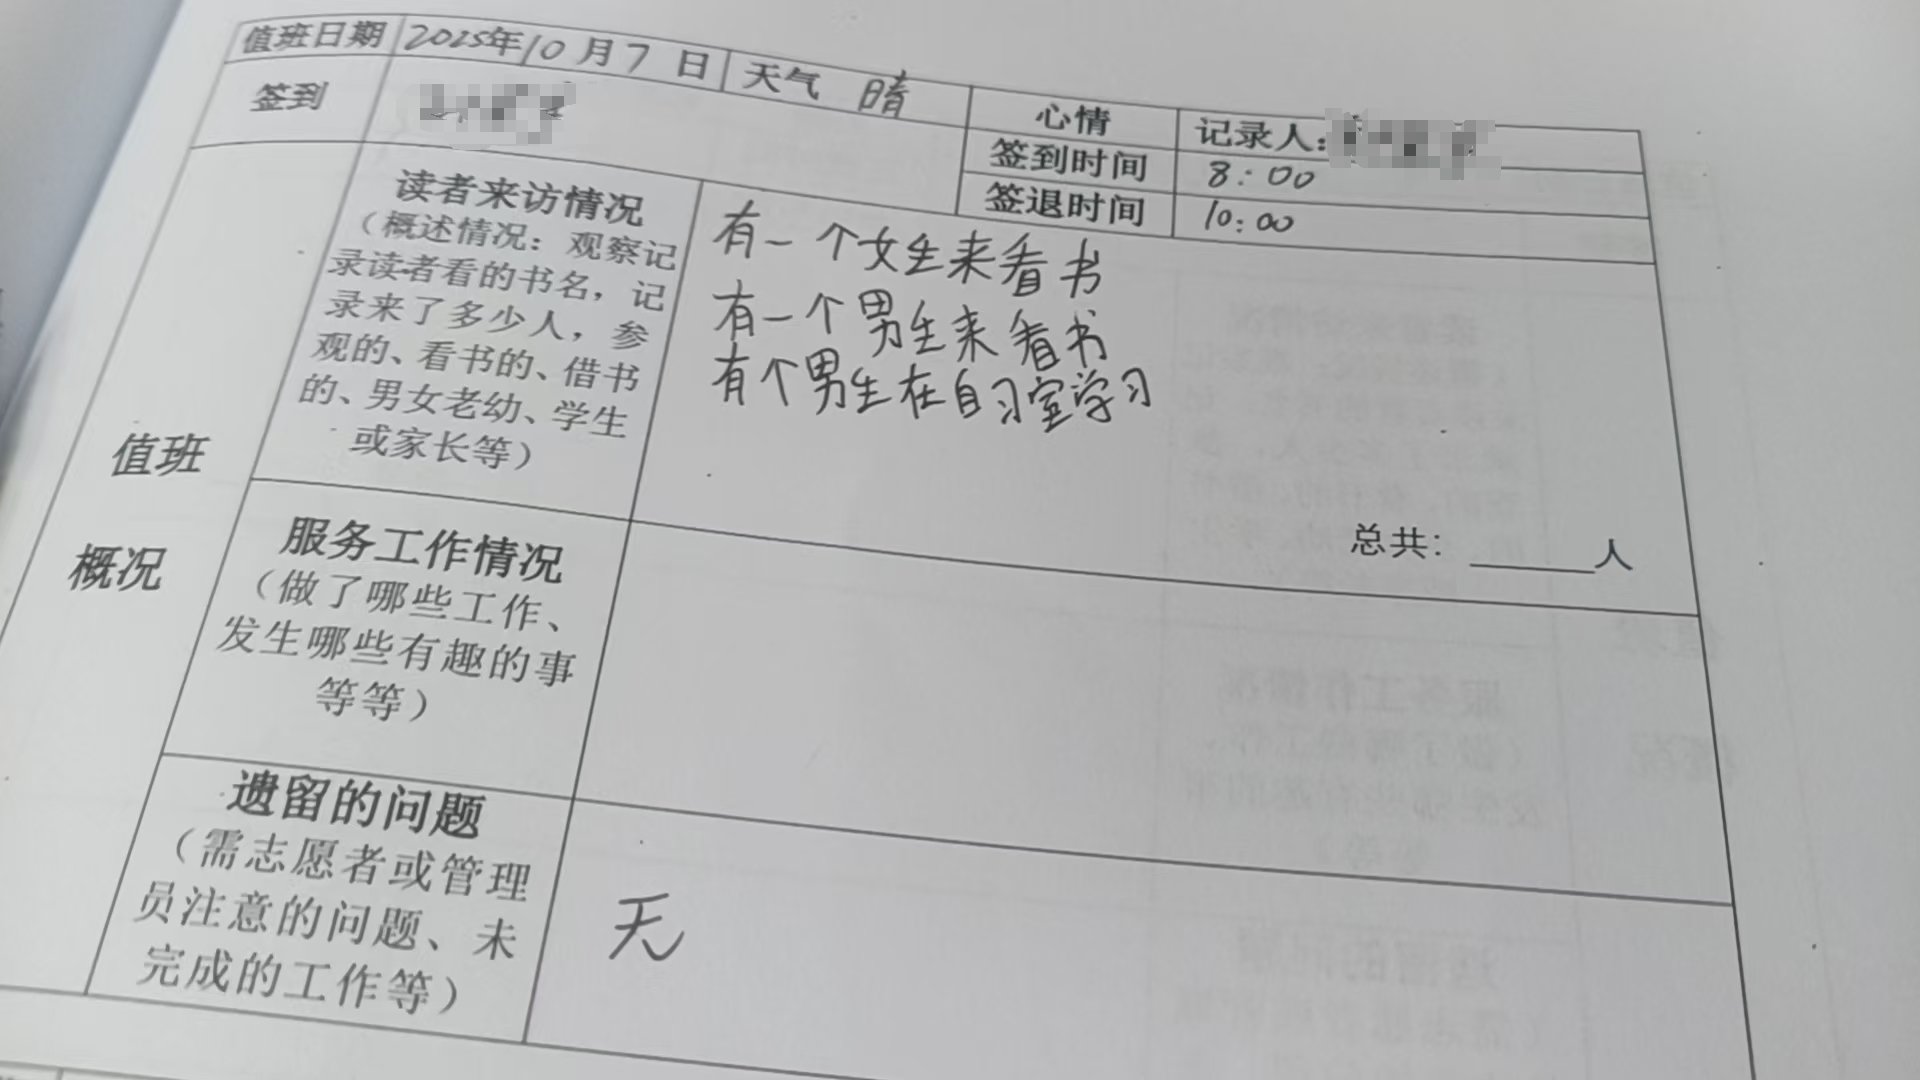 值班日期 2025年10月7日 天气 晴
签到
心情 记录人：
签到时间 8:00
签退时间 10:00
值班
概况
读者来访情况
（概述情况：观察记
录读者看的书名，记
录来了多少人，参
观的、看书的、借书
的、男女老幼、学生
或家长等）
有一个女生来看书
有一个男生来看书
有个男生在自习室学习
总共：______人
服务工作情况
（做了哪些工作、
发生哪些有趣的事
等等）
遗留的问题
（需志愿者或管理
员注意的问题、未
完成的工作等）
无